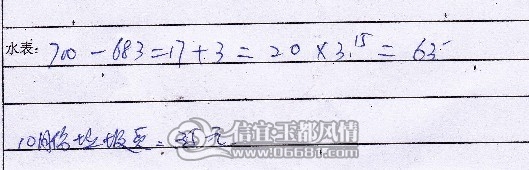 水表: 700 - 683 = 17 + 3 = 20 × 3.15 = 63-
10月份垃圾费: 35元
信宜玉都风情
www.06681.com